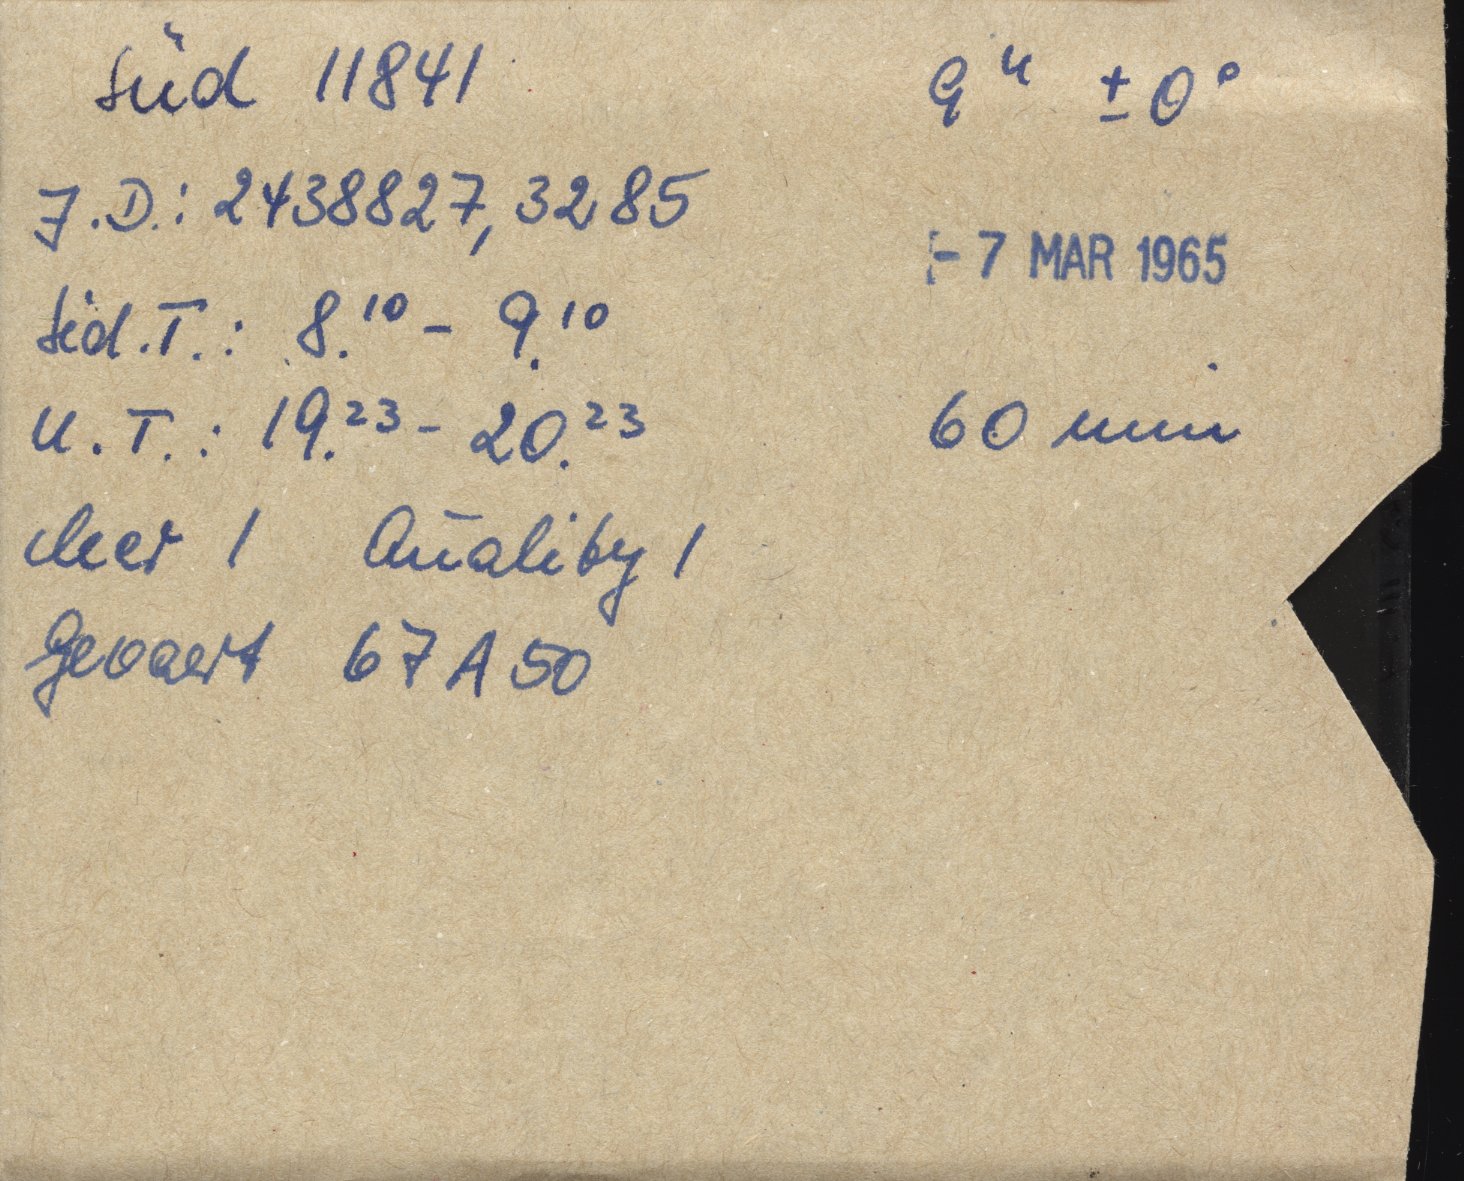 Süd 11841 9ʰ ±0°
J.D.: 2438827,3285
- 7 MAR 1965
Sid.T.: 8.¹⁰ - 9.¹⁰
U.T.: 19.²³ - 20.²³ 60 min
clear 1 Quality 1
Gevaert 67A50